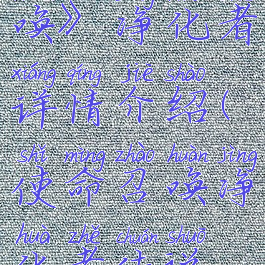 唤》净化者
xiáng qíng jiè shào
详情介绍(
shǐ mìng zhào huàn jìng
使命召唤净
huà zhě chuán shuō
化者传说